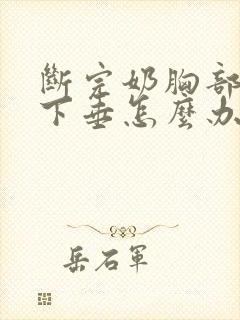 斷完奶胸部
下垂怎麼办
岳石軍